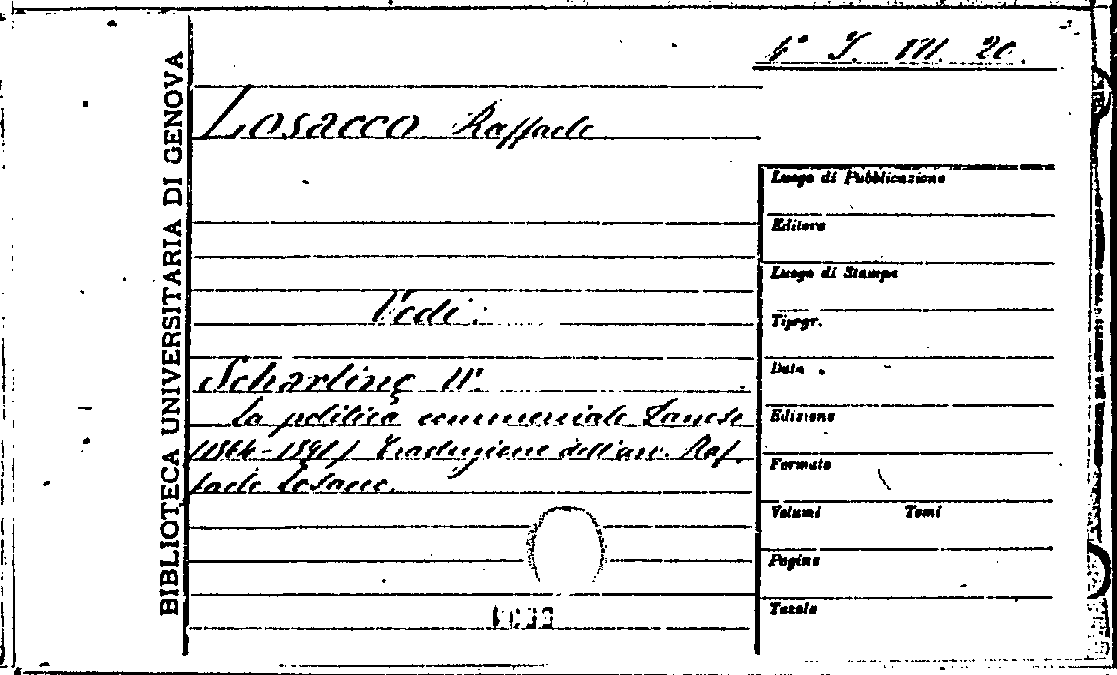 4° I. VII. 20.
BIBLIOTECA UNIVERSITARIA DI GENOVA
Losacco Raffaele
Vedi:
Scharling W.
La politica commerciale Danese
(1864-1891) Traduzione dell'avv. Raf-
faele Losacco.
Luogo di Pubblicazione
Editore
Luogo di Stampa
Tipogr.
Data
Edizione
Formato
Volumi Tomi
Pagine
Tavole